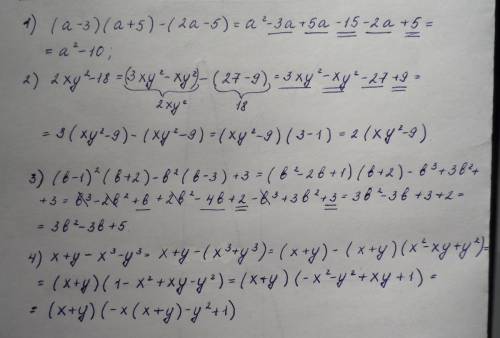 1) (a-3)(a+5)-(2a-5)=a²-3a+5a-15-2a+5=
=a²-10;
2) 2xy²-18=(3xy²-xy²)-(27-9)=3xy²-xy²-27+9=
2xy² 18
=3(xy²-9)-(xy²-9)=(xy²-9)(3-1)=2(xy²-9)
3) (b-1)²(b+2)-b²(b-3)+3=(b²-2b+1)(b+2)-b³+3b²+
+3=b³-2b²+b+2b²-4b+2-b³+3b²+3=3b²-3b+3+2=
=3b²-3b+5
4) x+y-x³-y³=x+y-(x³+y³)=(x+y)-(x+y)(x²-xy+y²)=
=(x+y)(1-x²+xy-y²)=(x+y)(-x²-y²+xy+1)=
=(x+y)(-x(x+y)-y²+1)